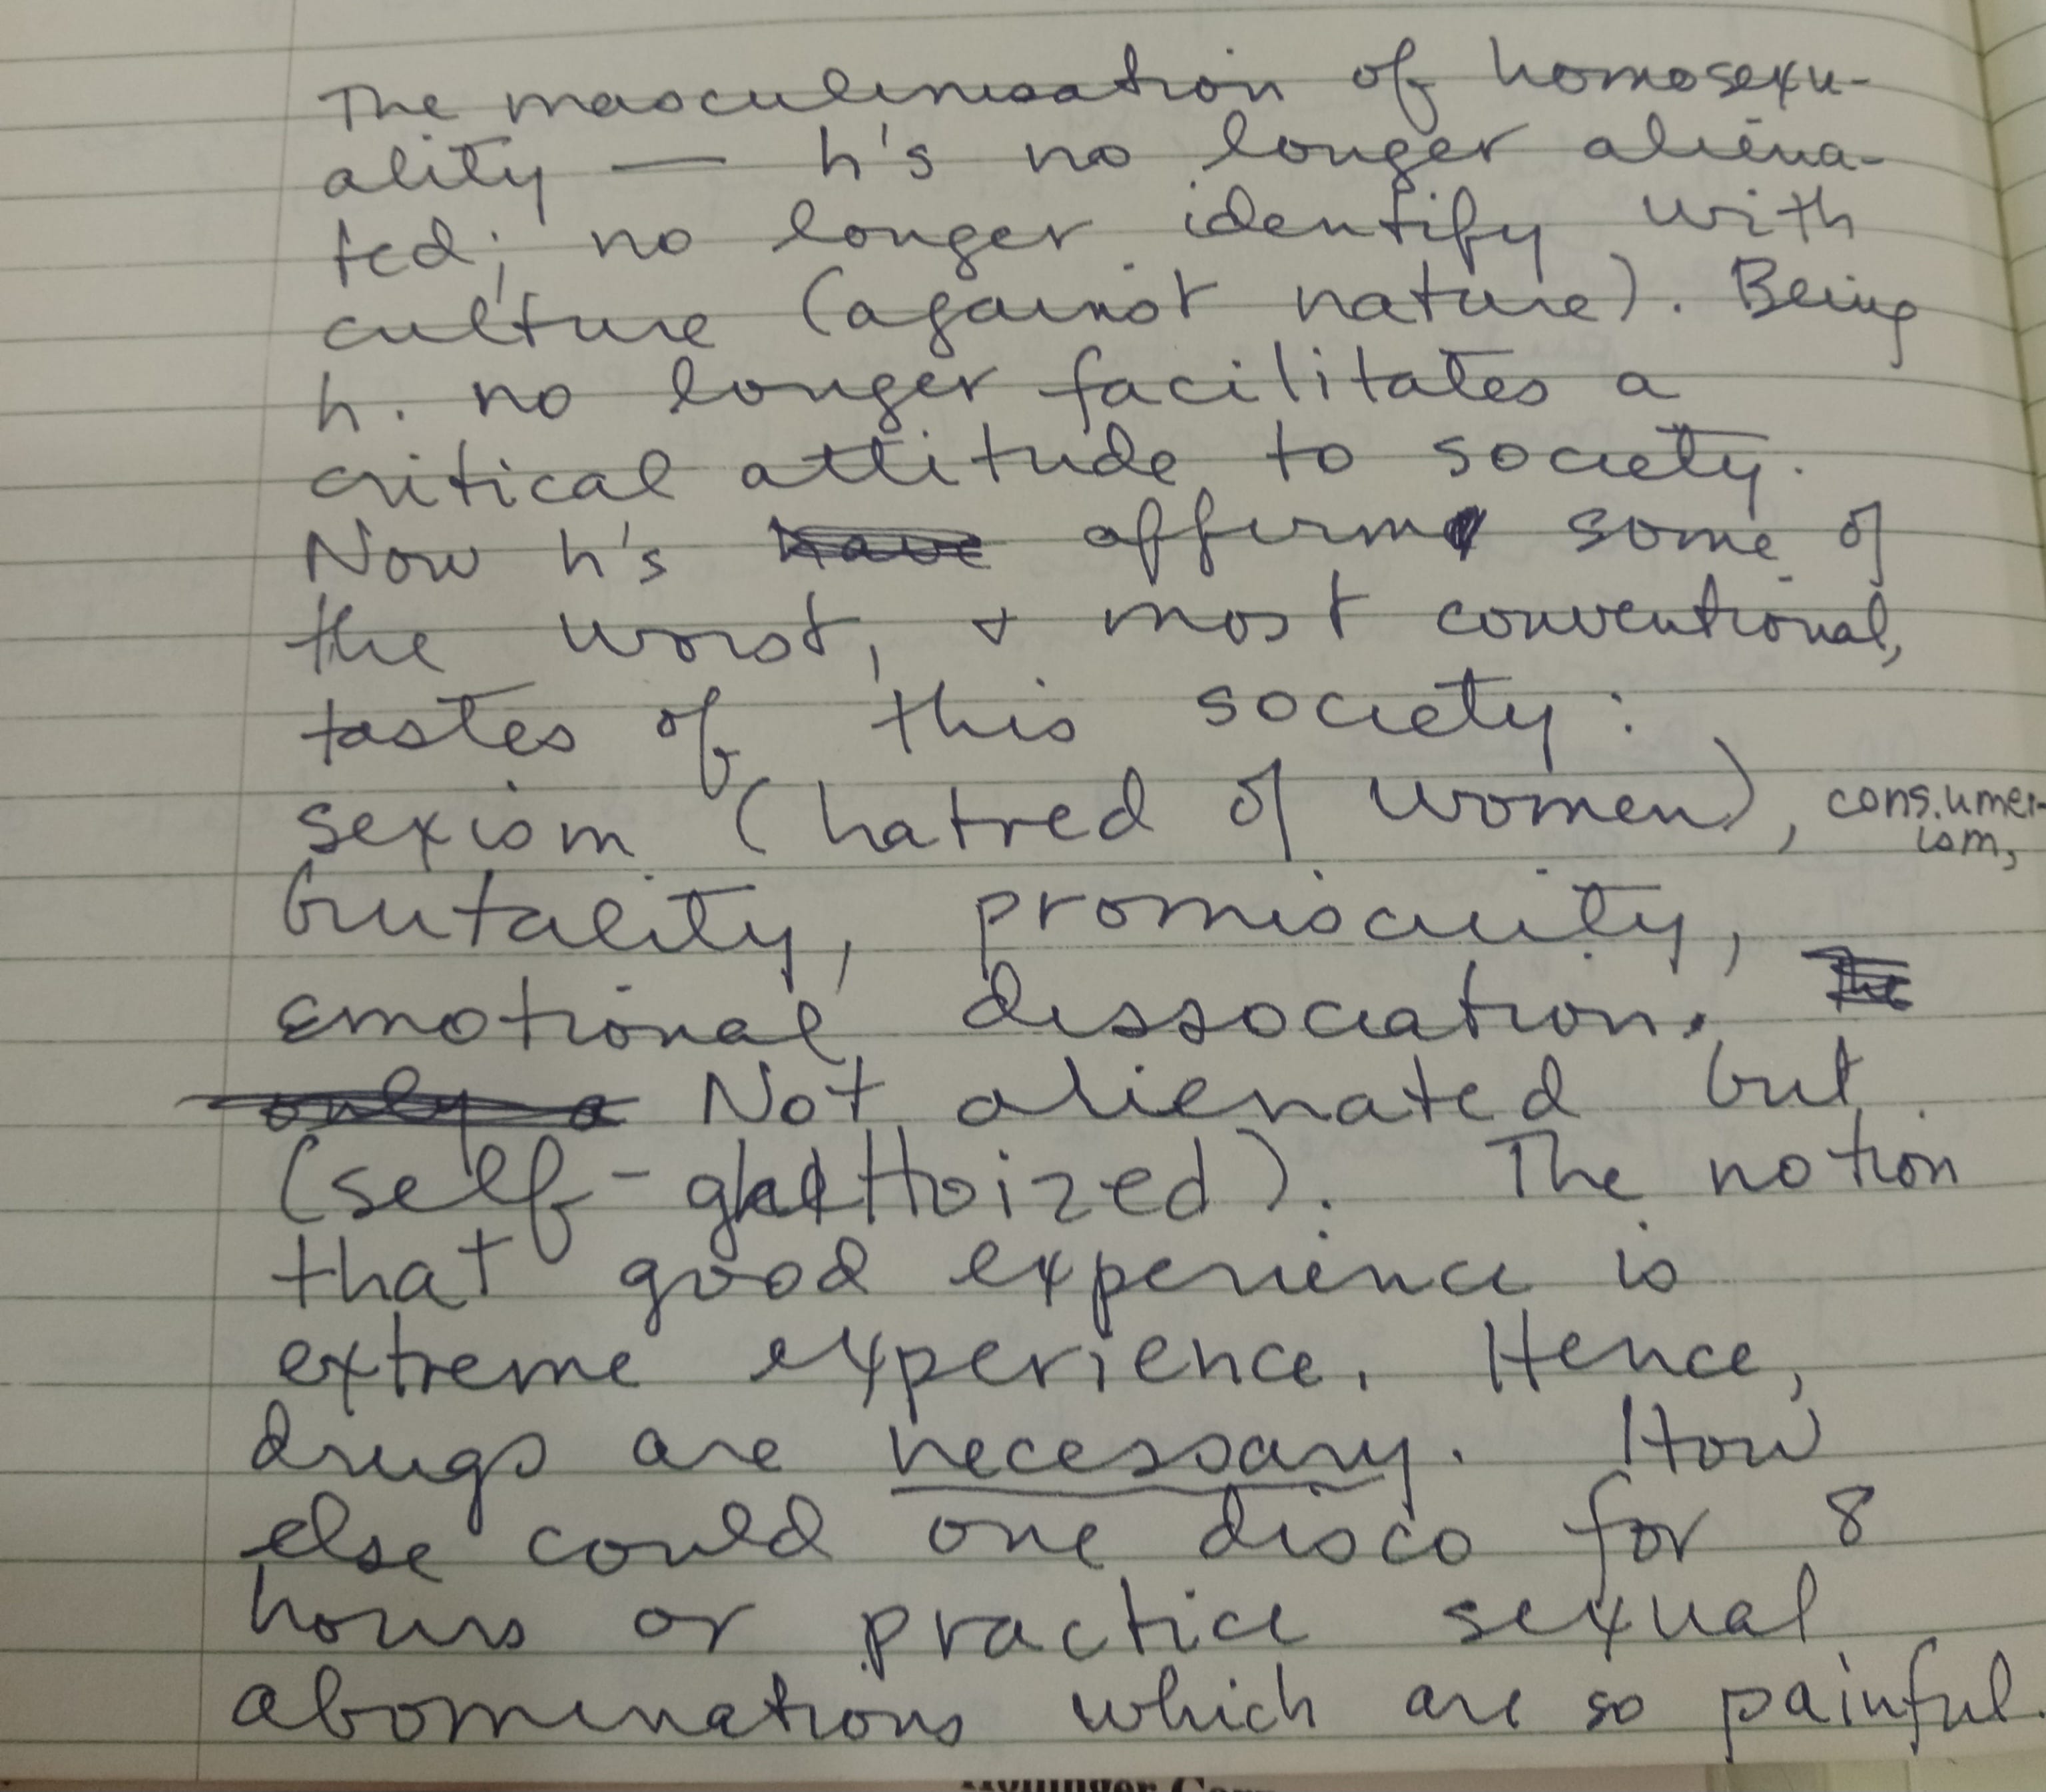 The masculinisation of homosexu-
ality — h's no longer aliena-
ted; no longer identify with
culture (against nature). Being
h. no longer facilitates a
critical attitude to society.
Now h's have affirm some of
the worst, + most conventional,
tastes of this society:
sexism (hatred of women), consumer-
ism,
brutality, promiscuity,
emotional dissociation. The
only a Not alienated but
(self-ghettoized). The notion
that good experience is
extreme experience. Hence,
drugs are necessary. How
else could one disco for 8
hours or practice sexual
abominations which are so painful.